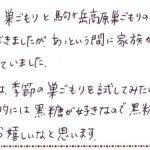 巣ごもりと駒ヶ岳高原巣ごもりの
きましたが あっという間に家族か
ていました。
は季節の巣ごもりを試してみたい
的には黒糖が好きなので黒糖
ら嬉しいなと思います。